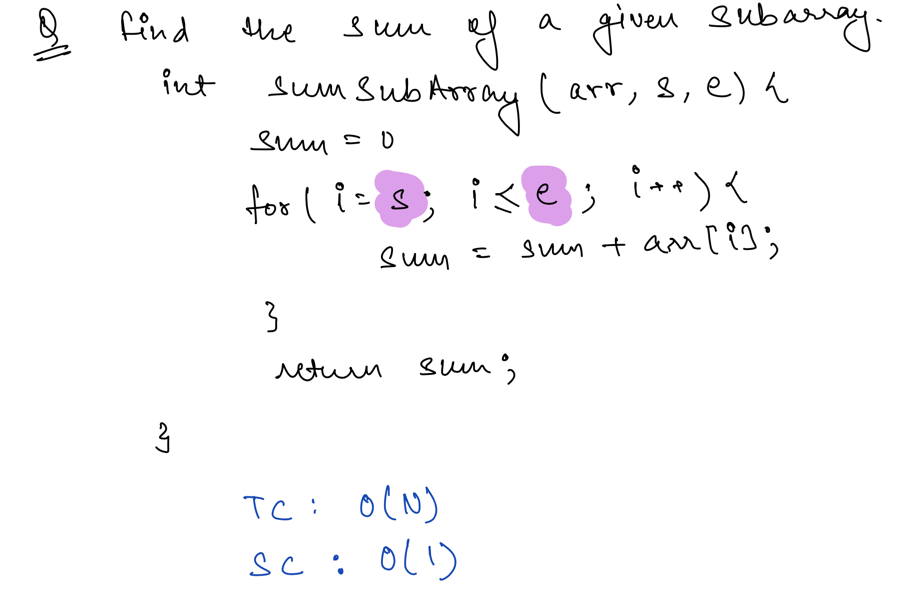 Q find the sum of a given subarray.
int sumSubArray (arr, s, e) {
sum = 0
for( i= s; i ≤ e ; i++) {
sum = sum + arr[i];
}
return sum;
}
TC : O(N)
SC : O(1)